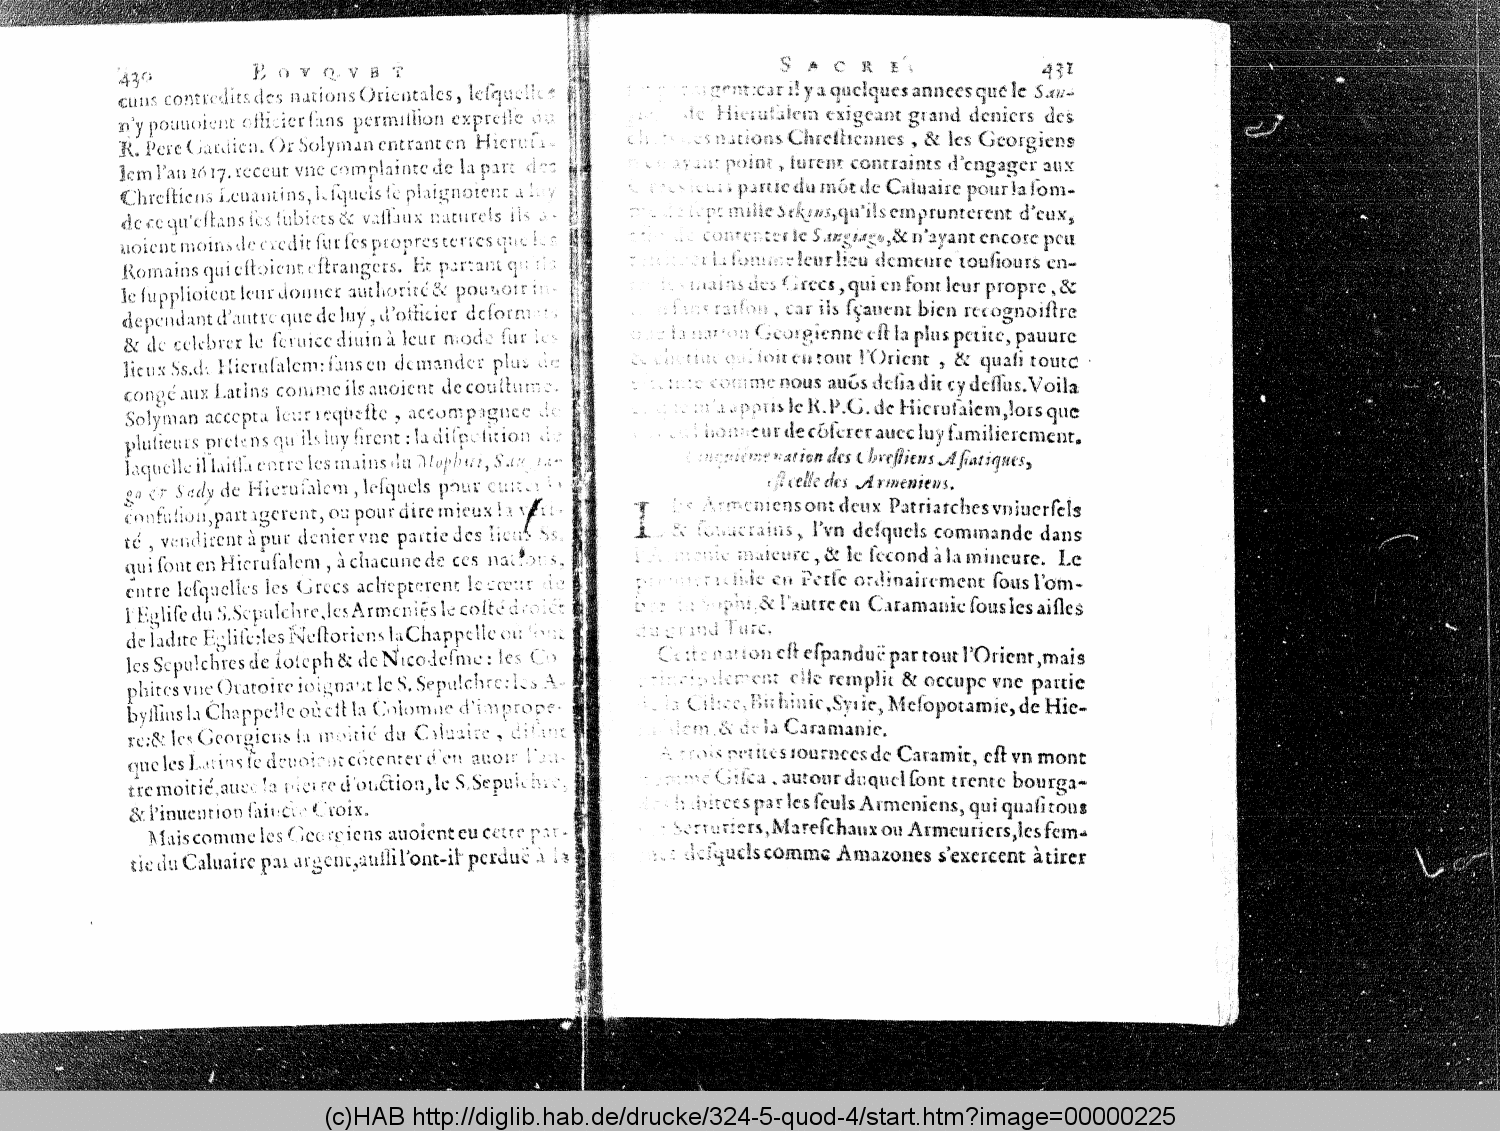 430 BOVQVET
cuns contredits des nations Orientales, lesquelles
n'y pouuoient officier sans permission expresse du
R. Pere Gardien. Or Solyman entrant en Hierusa-
lem l'an 1617. receut vne complainte de la part des
Chrestiens Leuantins, lesquels se plaignoient a luy
de ce qu'estans ses subiets & vassaux naturels ils a-
uoient moins de credit sur ses propres terres que les
Romains qui estoient estrangers. Et partant qu'ils
le supplioient leur donner authorité & pouuoir in-
dependant d'autre que de luy, d'officier desormais
& de celebrer le seruice diuin à leur mode sur les
lieux Ss. de Hierusalem: sans en demander plus de
congé aux Latins comme ils auoient de coustume.
Solyman accepta leur requeste, accompagnee de
plusieurs presens qu'ils luy firent: la disposition de
laquelle il laissa entre les mains du Mophti, Sangia-
go & Sady de Hierusalem, lesquels pour euiter la
confusion, partagerent, ou pour dire mieux la
té, vendirent à pur denier vne partie des lieux Ss.
qui sont en Hierusalem, à chacune de ces nations,
entre lesquelles les Grecs achepterent le cœur de
l'Eglise du S. Sepulchre, les Armeniẽs le costé droict
de ladite Eglise: les Nestoriens la Chappelle ou sont
les Sepulchres de Ioseph & de Nicodesme: les Co-
phites vne Oratoire ioignant le S. Sepulchre: les A-
byssins la Chappelle où est la Colomne d'impropere-
re: & les Georgiens la moitié du Caluaire, disant
que les Latins se deuoient cõtenter d'en auoir l'au-
tre moitié, auec la pierre d'onction, le S. Sepulchre,
& l'inuention saincte Croix.
Mais comme les Georgiens auoient eu cette par-
tie du Caluaire par argent, aussi l'ont-il perduë à la
SACRE. 431
argent: car il y a quelques annees que le San-
de Hierusalem exigeant grand deniers des
des nations Chrestiennes, & les Georgiens
n'en ayant point, furent contraints d'engager aux
partie du mõt de Caluaire pour la som-
me de sept mille Sekins, qu'ils emprunterent d'eux,
de contenter le Sangiago, & n'ayant encore peu
la somme leur lieu demeure tousiours en-
mains des Grecs, qui en font leur propre, &
sans raison, car ils sçauent bien recognoistre
que la nation Georgienne est la plus petite, pauure
& chetiue qui soit en tout l'Orient, & quasi toute
comme nous auõs desia dit cy dessus. Voila
ce que m'a appris le R.P.G. de Hierusalem, lors que
l'honneur de cõferer auec luy familierement.
Cinquiéme nation des Chrestiens Asiatiques,
est celle des Armeniens.
Les Armeniens ont deux Patriarches vniuersels
& souuerains, l'vn desquels commande dans
l'Armenie maieure, & le second à la mineure. Le
premier reside en Perse ordinairement sous l'om-
bre du Sophi, & l'autre en Caramanie sous les aisles
du grand Turc.
Cette nation est espanduë par tout l'Orient, mais
principalement elle remplit & occupe vne partie
de la Cilice, Bithinie, Syrie, Mesopotamie, de Hie-
rusalem, & de la Caramanie.
A trois petites iournees de Caramit, est vn mont
nommé Gisca, autour duquel sont trente bourga-
des habitees par les seuls Armeniens, qui quasi tous
sont Serruriers, Mareschaux ou Armeuriers, les fem-
mes desquels comme Amazones s'exercent à tirer
(c)HAB http://diglib.hab.de/drucke/324-5-quod-4/start.htm?image=00000225